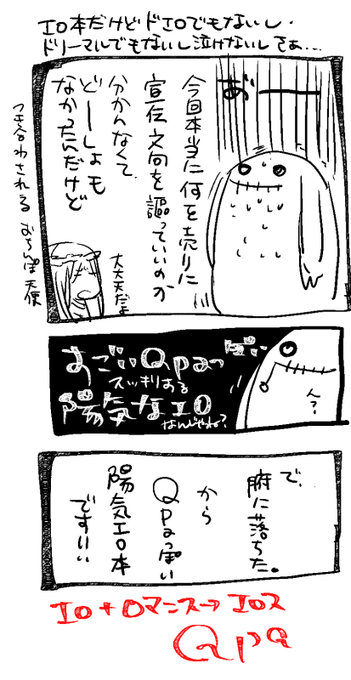 エロ本だけどドエロでもないし、
ドリーマルでもないし泣けないしさぁ…
あ゛ーー
今回本当に何を売りに
宣伝文句を謳っていいのか
分かんなくて
どーしょも
なかったんだけど
大大天だよ
つき合わされるおちんぽ天使
すごいQpaっぽい
スッキリある
陽気なエロ
なんじゃね?
ん?
で、
腑に落ちた。
から
Qpaっぽい
陽気エロ本
ですいい
エロ+ロマンス→エロス
Qpa